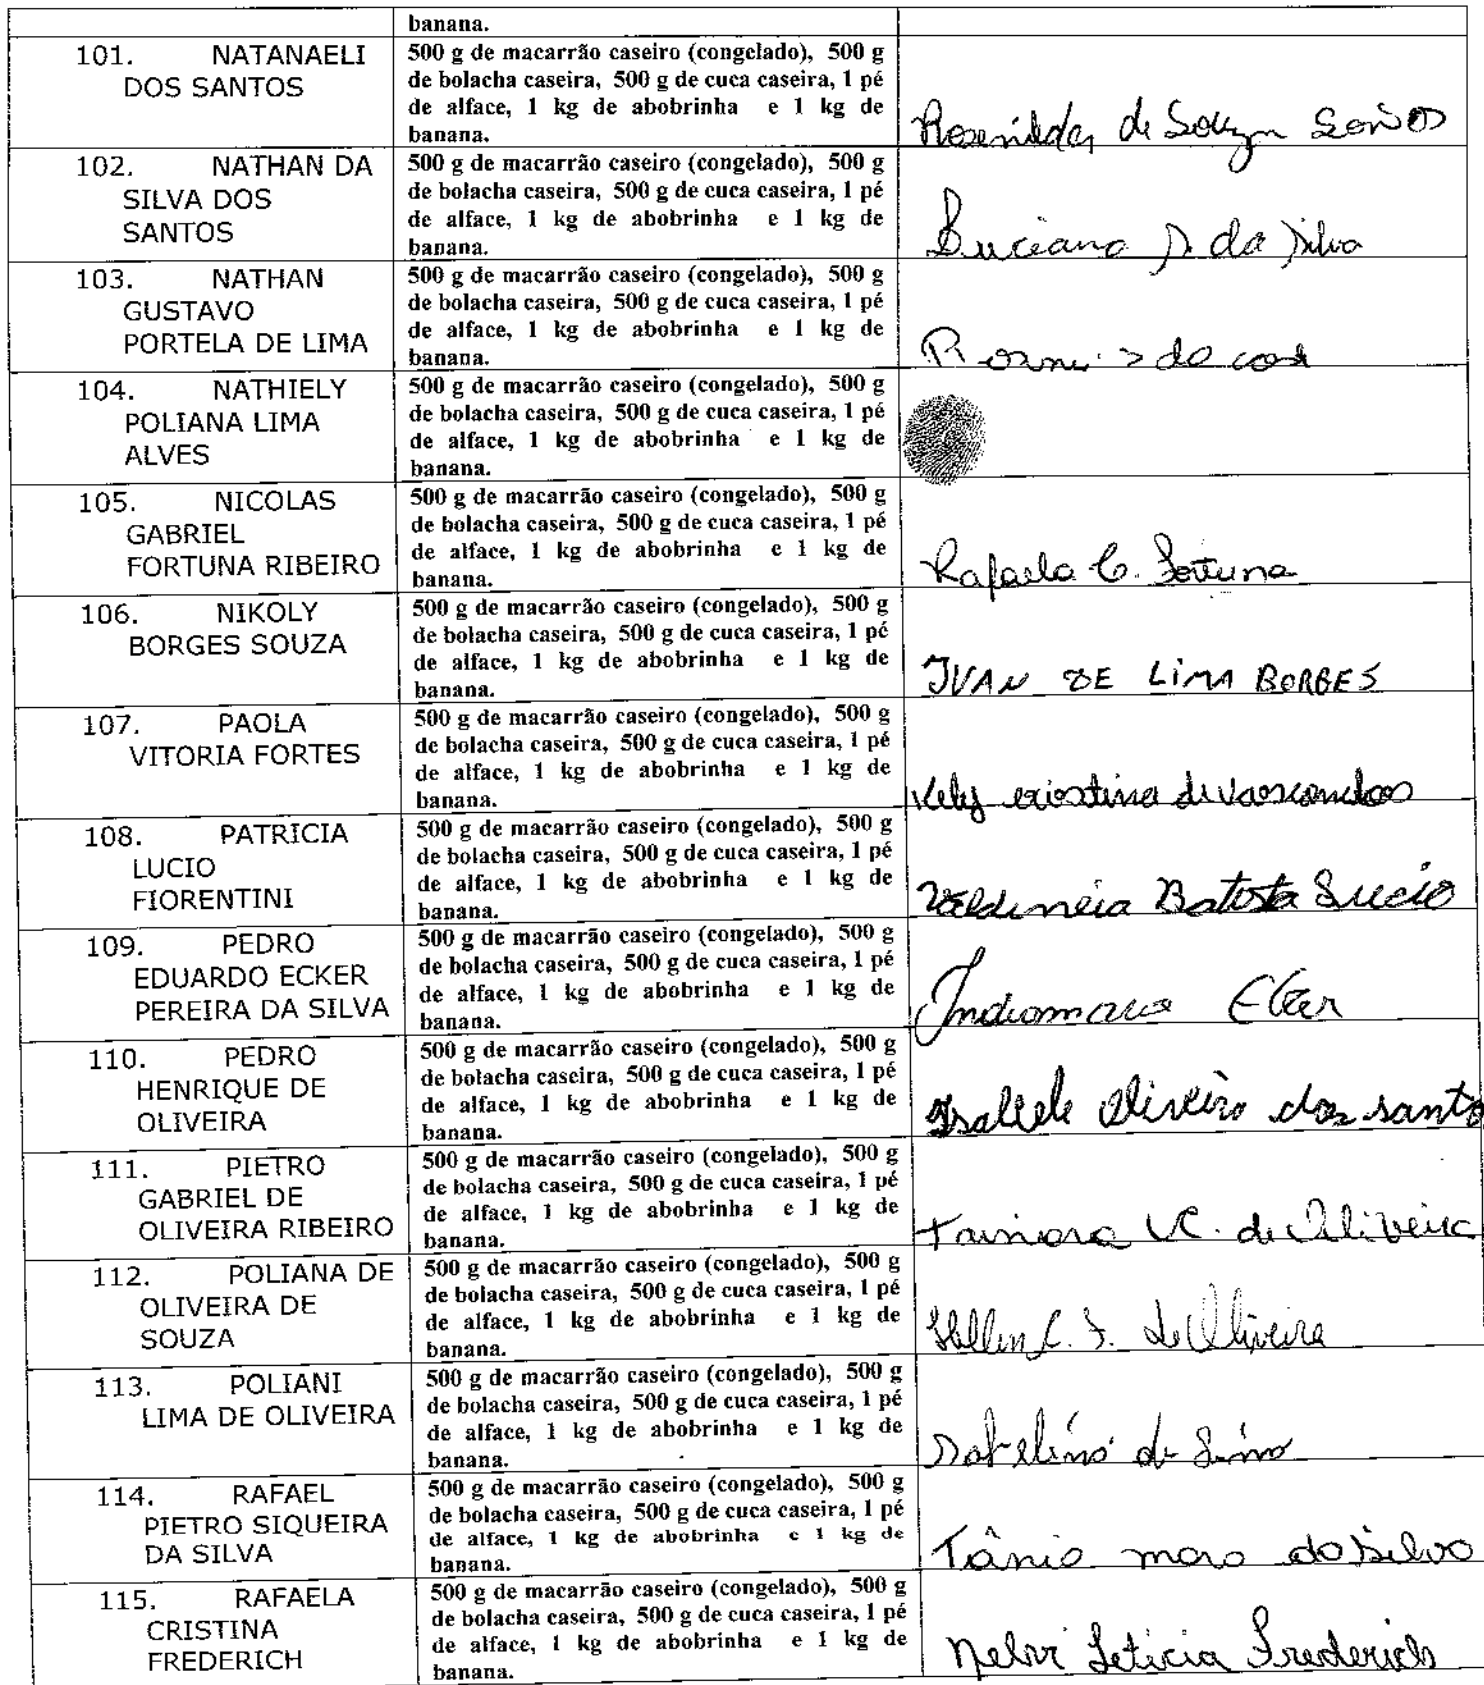 banana.
101. NATANAELI
DOS SANTOS
500 g de macarrão caseiro (congelado), 500 g
de bolacha caseira, 500 g de cuca caseira, 1 pé
de alface, 1 kg de abobrinha e 1 kg de
banana.
Rosenilda de Souza
102. NATHAN DA
SILVA DOS
SANTOS
500 g de macarrão caseiro (congelado), 500 g
de bolacha caseira, 500 g de cuca caseira, 1 pé
de alface, 1 kg de abobrinha e 1 kg de
banana.
Luciana da Silva
103. NATHAN
GUSTAVO
PORTELA DE LIMA
500 g de macarrão caseiro (congelado), 500 g
de bolacha caseira, 500 g de cuca caseira, 1 pé
de alface, 1 kg de abobrinha e 1 kg de
banana.
104. NATHIELY
POLIANA LIMA
ALVES
500 g de macarrão caseiro (congelado), 500 g
de bolacha caseira, 500 g de cuca caseira, 1 pé
de alface, 1 kg de abobrinha e 1 kg de
banana.
105. NICOLAS
GABRIEL
FORTUNA RIBEIRO
500 g de macarrão caseiro (congelado), 500 g
de bolacha caseira, 500 g de cuca caseira, 1 pé
de alface, 1 kg de abobrinha e 1 kg de
banana.
Rafaela C. Fortuna
106. NIKOLY
BORGES SOUZA
500 g de macarrão caseiro (congelado), 500 g
de bolacha caseira, 500 g de cuca caseira, 1 pé
de alface, 1 kg de abobrinha e 1 kg de
banana.
IVAN DE LIMA BORGES
107. PAOLA
VITORIA FORTES
500 g de macarrão caseiro (congelado), 500 g
de bolacha caseira, 500 g de cuca caseira, 1 pé
de alface, 1 kg de abobrinha e 1 kg de
banana.
Kely cristina de vasconcelos
108. PATRICIA
LUCIO
FIORENTINI
500 g de macarrão caseiro (congelado), 500 g
de bolacha caseira, 500 g de cuca caseira, 1 pé
de alface, 1 kg de abobrinha e 1 kg de
banana.
Valdineia Batista Lucio
109. PEDRO
EDUARDO ECKER
PEREIRA DA SILVA
500 g de macarrão caseiro (congelado), 500 g
de bolacha caseira, 500 g de cuca caseira, 1 pé
de alface, 1 kg de abobrinha e 1 kg de
banana.
Indiomara
110. PEDRO
HENRIQUE DE
OLIVEIRA
500 g de macarrão caseiro (congelado), 500 g
de bolacha caseira, 500 g de cuca caseira, 1 pé
de alface, 1 kg de abobrinha e 1 kg de
banana.
Oliveira dos santos
111. PIETRO
GABRIEL DE
OLIVEIRA RIBEIRO
500 g de macarrão caseiro (congelado), 500 g
de bolacha caseira, 500 g de cuca caseira, 1 pé
de alface, 1 kg de abobrinha e 1 kg de
banana.
Tainara de Oliveira
112. POLIANA DE
OLIVEIRA DE
SOUZA
500 g de macarrão caseiro (congelado), 500 g
de bolacha caseira, 500 g de cuca caseira, 1 pé
de alface, 1 kg de abobrinha e 1 kg de
banana.
de Oliveira
113. POLIANI
LIMA DE OLIVEIRA
500 g de macarrão caseiro (congelado), 500 g
de bolacha caseira, 500 g de cuca caseira, 1 pé
de alface, 1 kg de abobrinha e 1 kg de
banana.
114. RAFAEL
PIETRO SIQUEIRA
DA SILVA
500 g de macarrão caseiro (congelado), 500 g
de bolacha caseira, 500 g de cuca caseira, 1 pé
de alface, 1 kg de abobrinha e 1 kg de
banana.
Tânia mara da Silva
115. RAFAELA
CRISTINA
FREDERICH
500 g de macarrão caseiro (congelado), 500 g
de bolacha caseira, 500 g de cuca caseira, 1 pé
de alface, 1 kg de abobrinha e 1 kg de
banana.
Nelvi Leticia Frederich